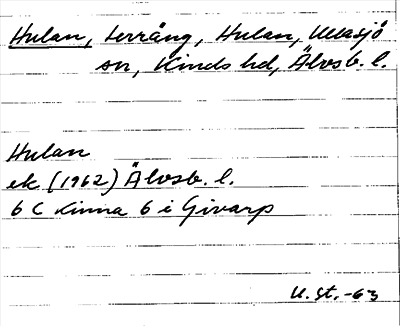 Hulan, terräng, Hulan, Ullasjö
sn, Kinds hd, Älvsb. l.
Hulan
ek. (1962) Älvsb. l.
6 C Kinna 6 i Givarp
U. St. -63